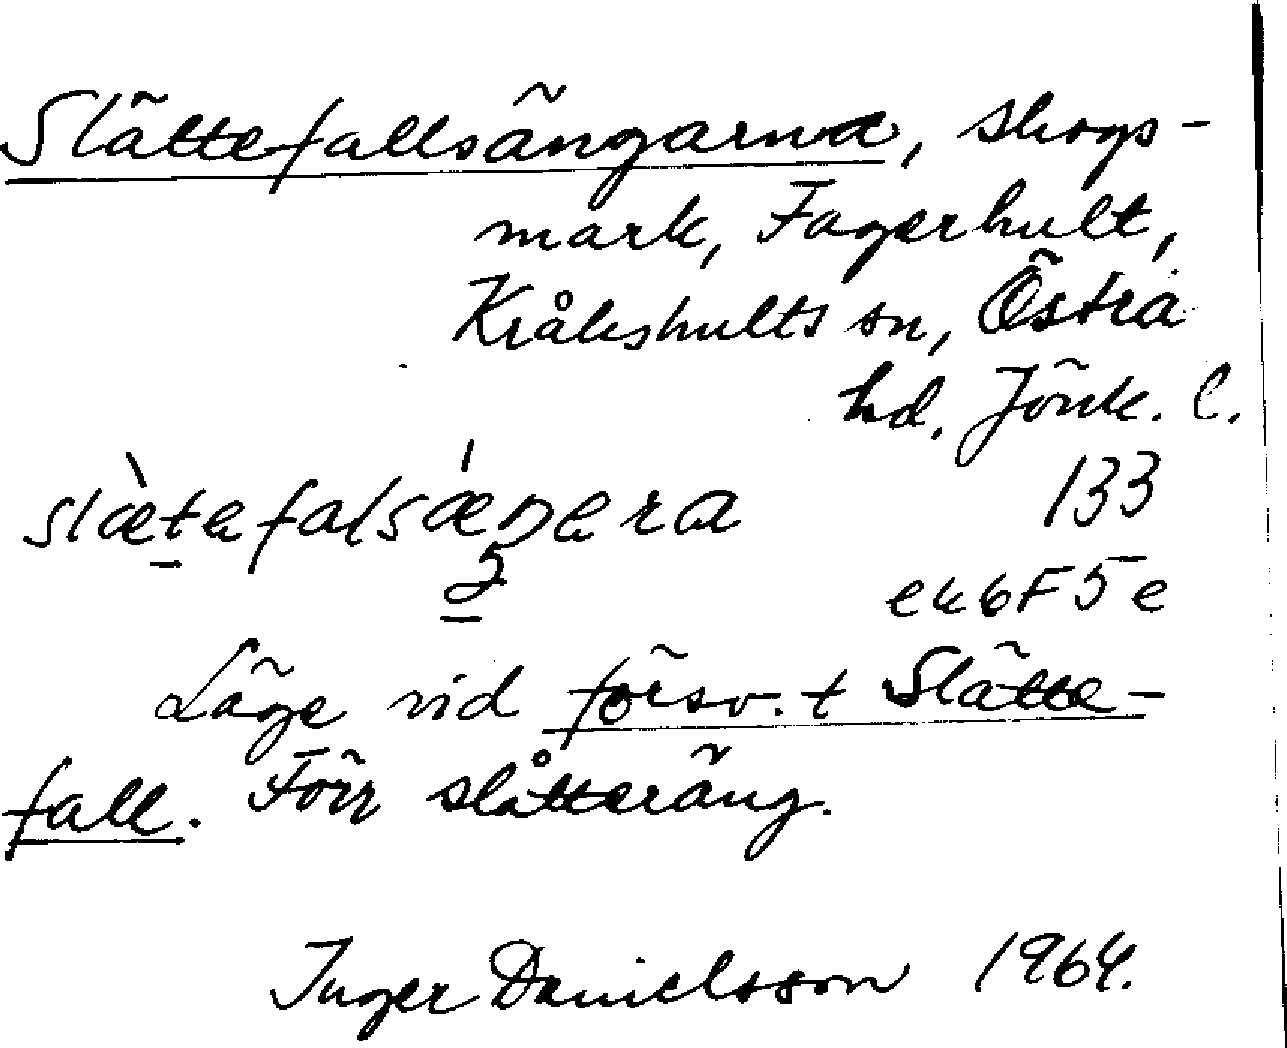 Slättefallsängarna, skogs-
mark, Fagerhult,
Kråkshults sn, Östra
hd, Jönk. l.
slæ̀tefalsǽŋera 133
5
ek6F5e
Läge vid försv. t Slätte-
fall. Förr slåtteräng.
Inger Danielsson 1964.